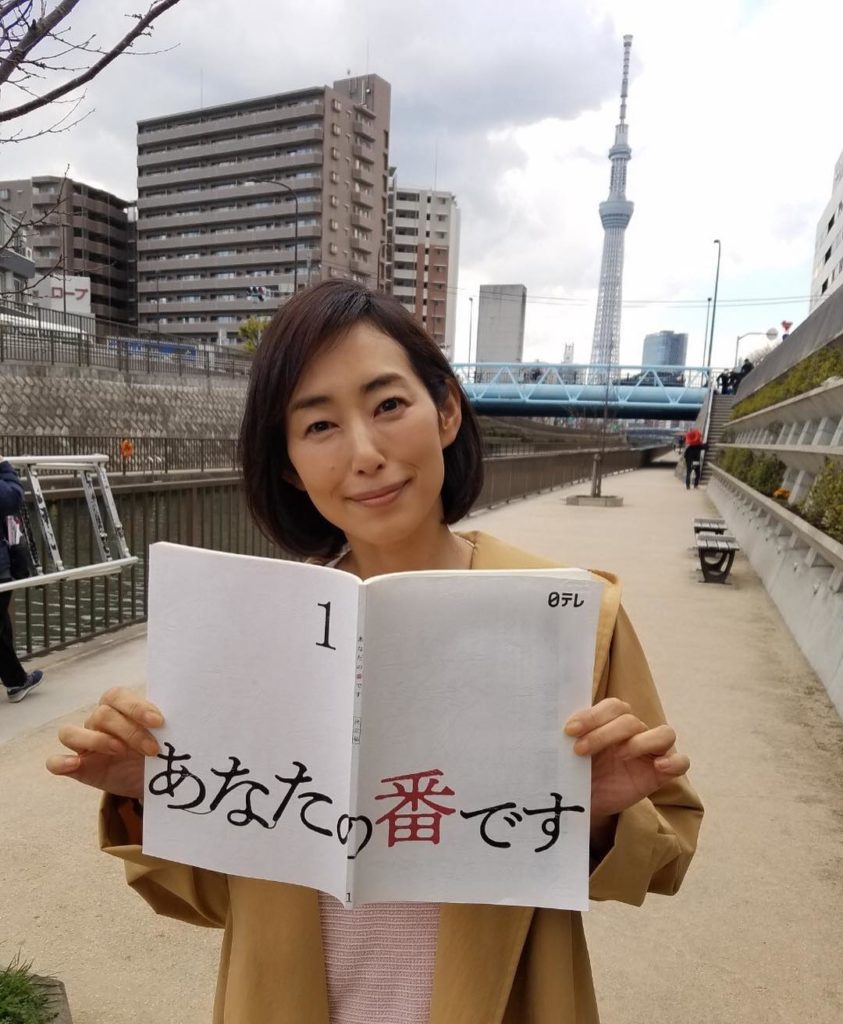 ロープ
1
日テレ
あなたの番です
あなたの番です
1